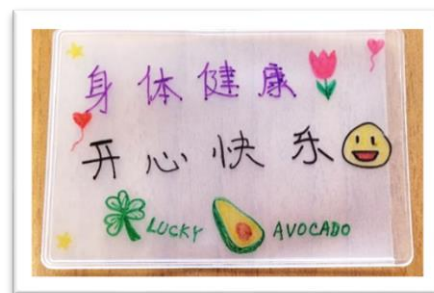 身体健康
开心快乐
LUCKY AVOCADO